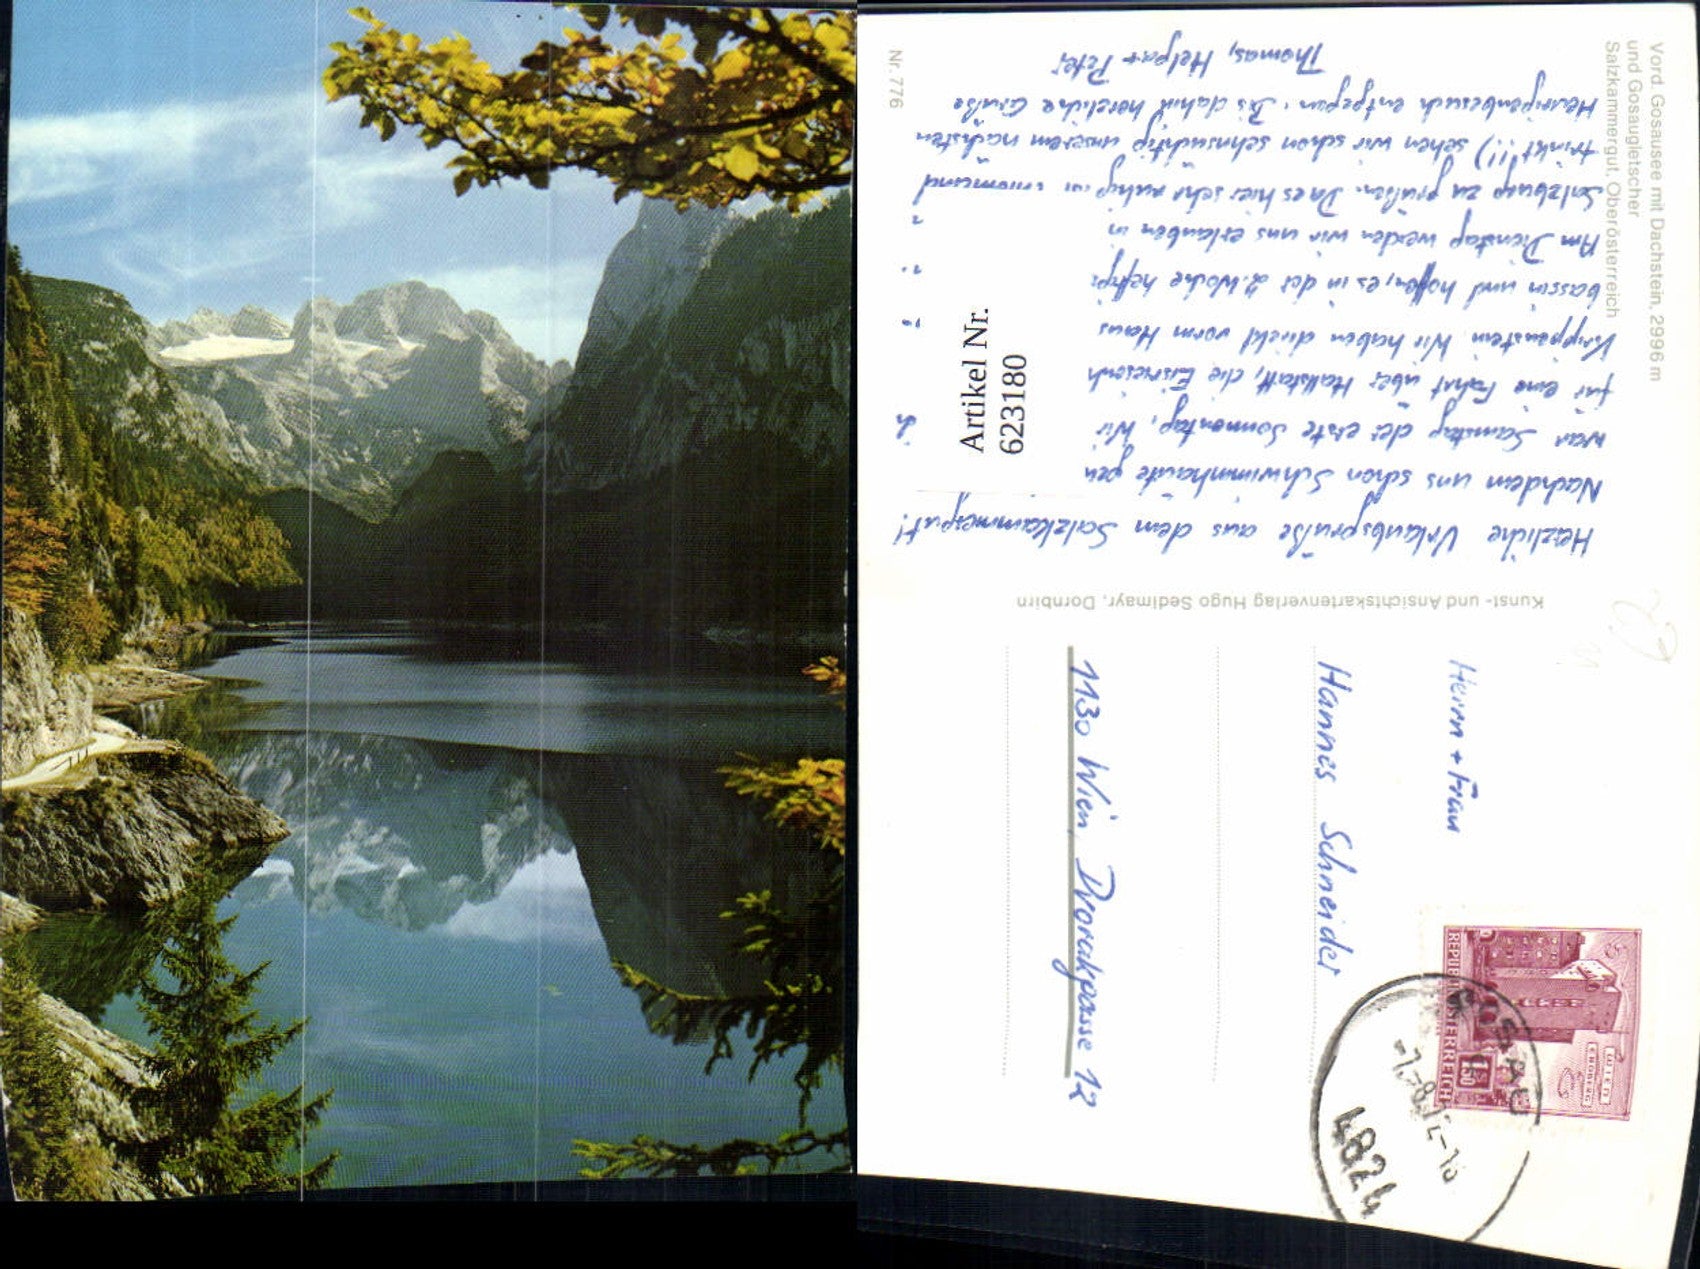 Vord. Gosausee mit Dachstein, 2996 m
und Gosaugletscher
Salzkammergut, Oberösterreich
Nr. 776
Herzliche Urlaubsgrüße aus dem Salzkammergut!
Nachdem uns schon Schwimmhäute
war Samstag der erste Sonnentag, Wir
für eine Fahrt über Hallstatt, die Eisriesenh
Krippenstein. Wir haben direkt vorm Haus
bassin und hoffen, es in der 2. Woche heftig
Am Dienstag werden wir uns erlauben in
Salzburg zu grüßen. Da es hier sehr ruhig ist
trinkt!!) sehen wir schon sehnsüchtig unserem nächsten
Heurigenbesuch entgegen. Bis dahin herzliche Grüße
Thomas, Helga + Peter
Artikel Nr.
623180
Kunst- und Ansichtskartenverlag Hugo Sedlmayr, Dornbirn
Herrn + Frau
Hannes Schneider
1130 Wien, Dvorakgasse 12
REPUBLIK ÖSTERREICH
1.50
WIEN
ERDBERG
GOSAU
4824